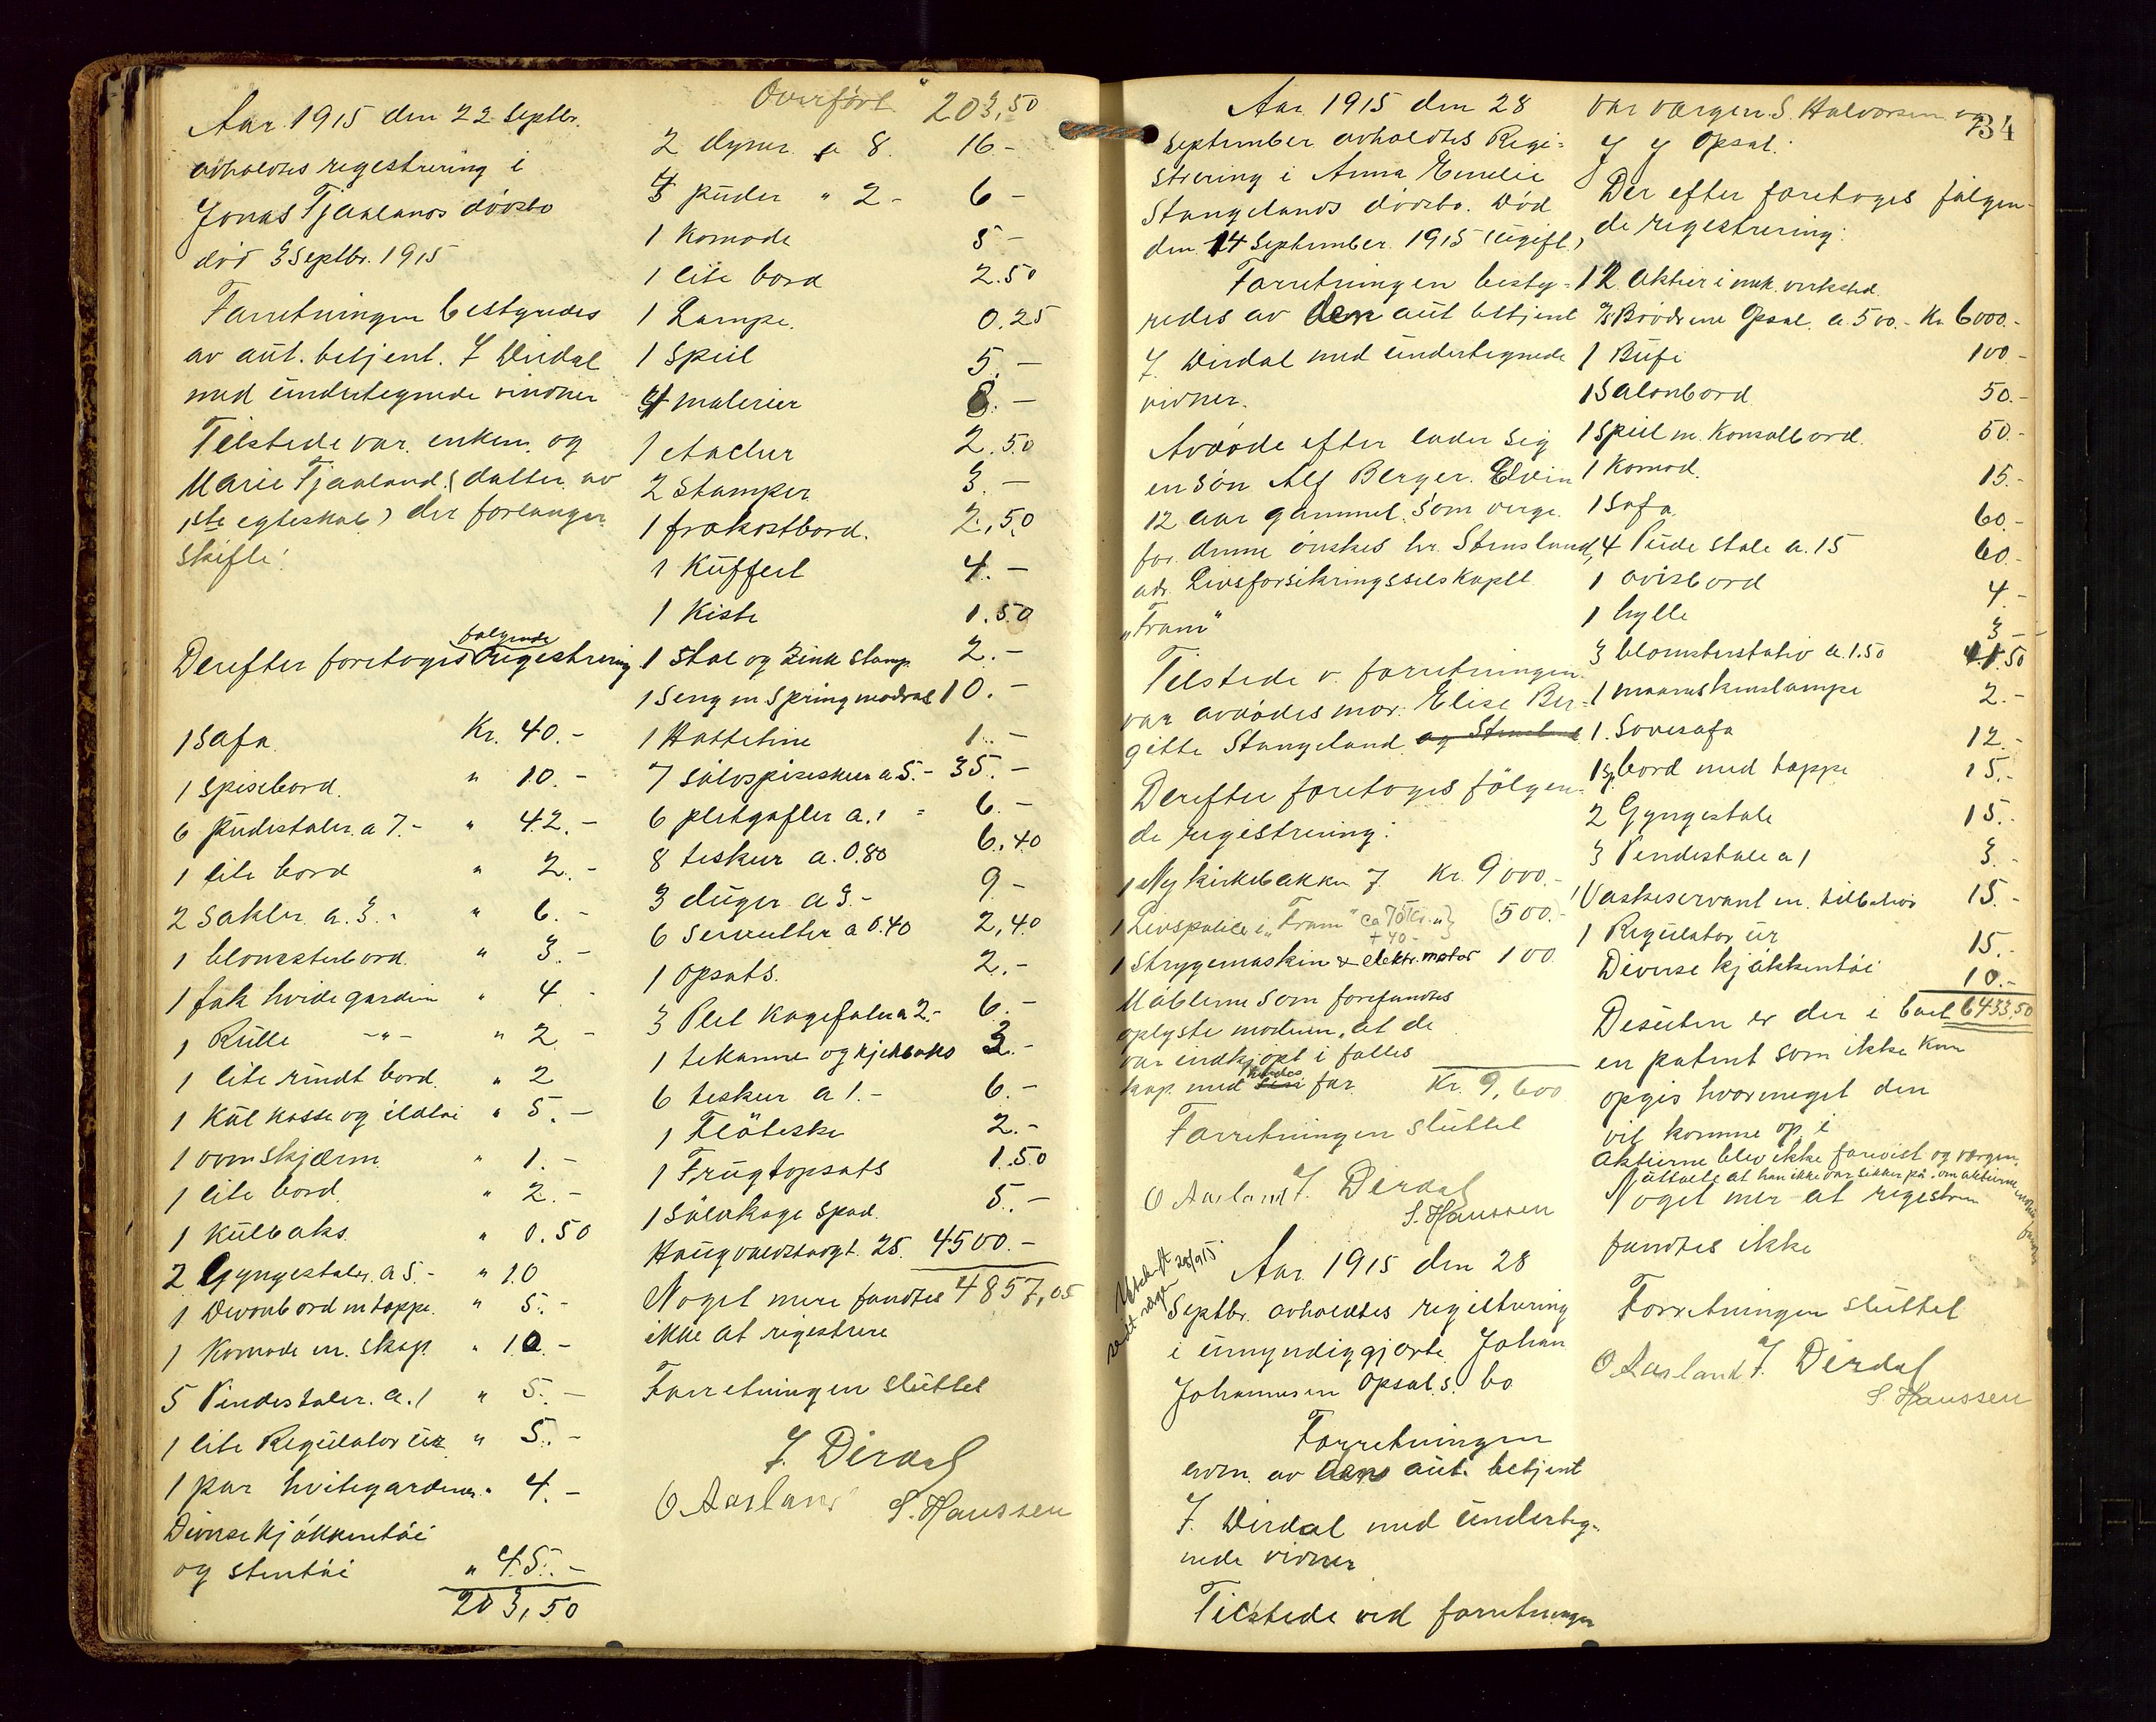 Aar 1915 den 22 Septbr.
avholdtes regestrering i
Jonas Tjaalands dödsbo
död 3 Septbr. 1915
Forretningen bestyredes
av aut. betjent. J Dirdal
med undertegnede vindner
Tilstede var. enken. og
Marie Tjaaland. (datter av
1ste egteskab) der forlanger
skifte!
Derefter foretoges følgende regestrering
1 Sofa Kr. 40.-
1 Spisebord. " 10.-
6 Pudestoler. a 7.- " 42.-
1 lite bord " 2.-
2 Sakler. a. 3.- " 6.-
1 blomsterbord. " 3.-
1 fak hvide gardin " 4.-
1 Rulle -"- " 2.-
1 lite rundt bord. " 2
1 Kul kasse og ildtøi " 5.-
1 ovnskjærm " 1.-
1 lite bord. " 2.-
1 Kulboks. " 0.50
2 Gyngestoler. a 5.- " 10
1 Divanbord m tæppe. " 5.-
1 Komode m. skap. " 10.-
5 Pindestoler. a. 1 " 5.-
1 lite Regulator ur " 5.-
1 par hvitegardiner. " 4.-
Diverse kjökkentöi
og stentöi " 45.-
203,50
Overført " 203,50
2 dyner. a 8. 16-
3 puder " 2- 6-
1 Komode 5-
1 lite bord 2.50
1 Lampe. 0.25
1 Speil 5.-
4 malerier 8.-
1 etachur 2.50
2 Stamper 3.-
1 frokostbord. 2.50
1 Kuffert 4.-
1 Kiste 1.50
1 Stol og Zink Stamp 2.-
1 Seng m Springmadras 10.-
1 Hatteline 1.-
7 Sölvspiseskeer a 5.- 35.-
6 pletgafler a. 1 = 6.-
8 teskeer a. 0.80 6.40
3 duger a 3.- 9-
6 Servietter a 0.40 2,40
1 opsats. 2.-
3 Plet Kagefater a 2.- 6.-
1 tekanne og kjeksboks 3.-
6 teskeer a 1.- 6.-
1 Flöteske 2.-
1 Frugtopsats 1.50
1 Sölvkage spad. 5.-
Haugvaldstadgt. 25. 4500.-
Noget mere fandtes 4857,05
ikke at rigestrere
Forretningen sluttet
J. Dirdal
O Aasland S. Haussen
Aar 1915 den 28
September avholdtes Regi=
strering i Anna Emelie
Stangelands dödsbo. Död
den 14 September. 1915 (ugift.)
Forretningen besty=
redes av den aut betjent
J. Dirdal med undertegnede
vidner.
Avdøde efter lader sig
en sön Alf Berger. Edvin
12 aar gammel. Som verge
for denne ønskes hr. Stensland,
adr. Livsforsikringsselskapet
"Fram"
Tilstede v. forretningen
var avdødes mor. Elise Ber=
gitte Stangeland og Stensland
Derefter foretoges fölgen=
de rigestrering:
1 Ny kirkebakken 7 Kr. 9000.-
1 Livspolice i "Fram" ca 70 Kr. (500.-
+ 40-
1 Strygemaskin & elektr. motor 100
Möblerne som forefandtes
oplyste moderen, at de
var indkjöpt i fælles
kap. med sin far. Kr. 9,600
Forretningen sluttet
O Aasland J. Dirdal
S. Haussen
Utskrift 28/9 15
Aar 1915 den 28
Septbr. avholdtes registrering
i umyndiggjorte Johan
Johannesen Opsal.s. bo
Forretningen
av den aut. betjent
J. Dirdal med underteg-
nede vidner
Tilstede ved forretningen
var værgen. S. Halvorsen og
J J Opsal.
34
Der efter foretoges følgen-
de regestrering:
12 Aktier i mek. verksted.
A/S Brödrene Opsal. a. 500.- Kr 6000.-
1 Bufe 100-
1 Salonbord 50.-
1 Speil m. Konsolbord. 50.-
1 Komod. 15.-
1 Sofa 60.-
4 Pude stole a. 15 60.-
1 avisbord 4.-
1 hylle 3-
3 blomsterstativ a. 1.50 4.50
1 maaneskinslampe 2.-
1. Sovesofa 12.-
1 sp. bord med tæppe 15.-
2 Gyngestole 15.-
3 Pindestole a 1 3.-
1 Vaskeservant m. tilbehør 15.-
1 Regulator ur 15.-
Diverse kjøkkentöi 10.-
Desuten er der i boet 6433,50
en patent som ikke kan
opgis hvormeget den
vil komme op i
Aktierne blev ikke forevist og værgen
uttalte at han ikke var sikker på om aktierne
Noget mer at regestrere
fandtes ikke
Forretningen sluttet
O Aasland J. Dirdal
S. Haussen